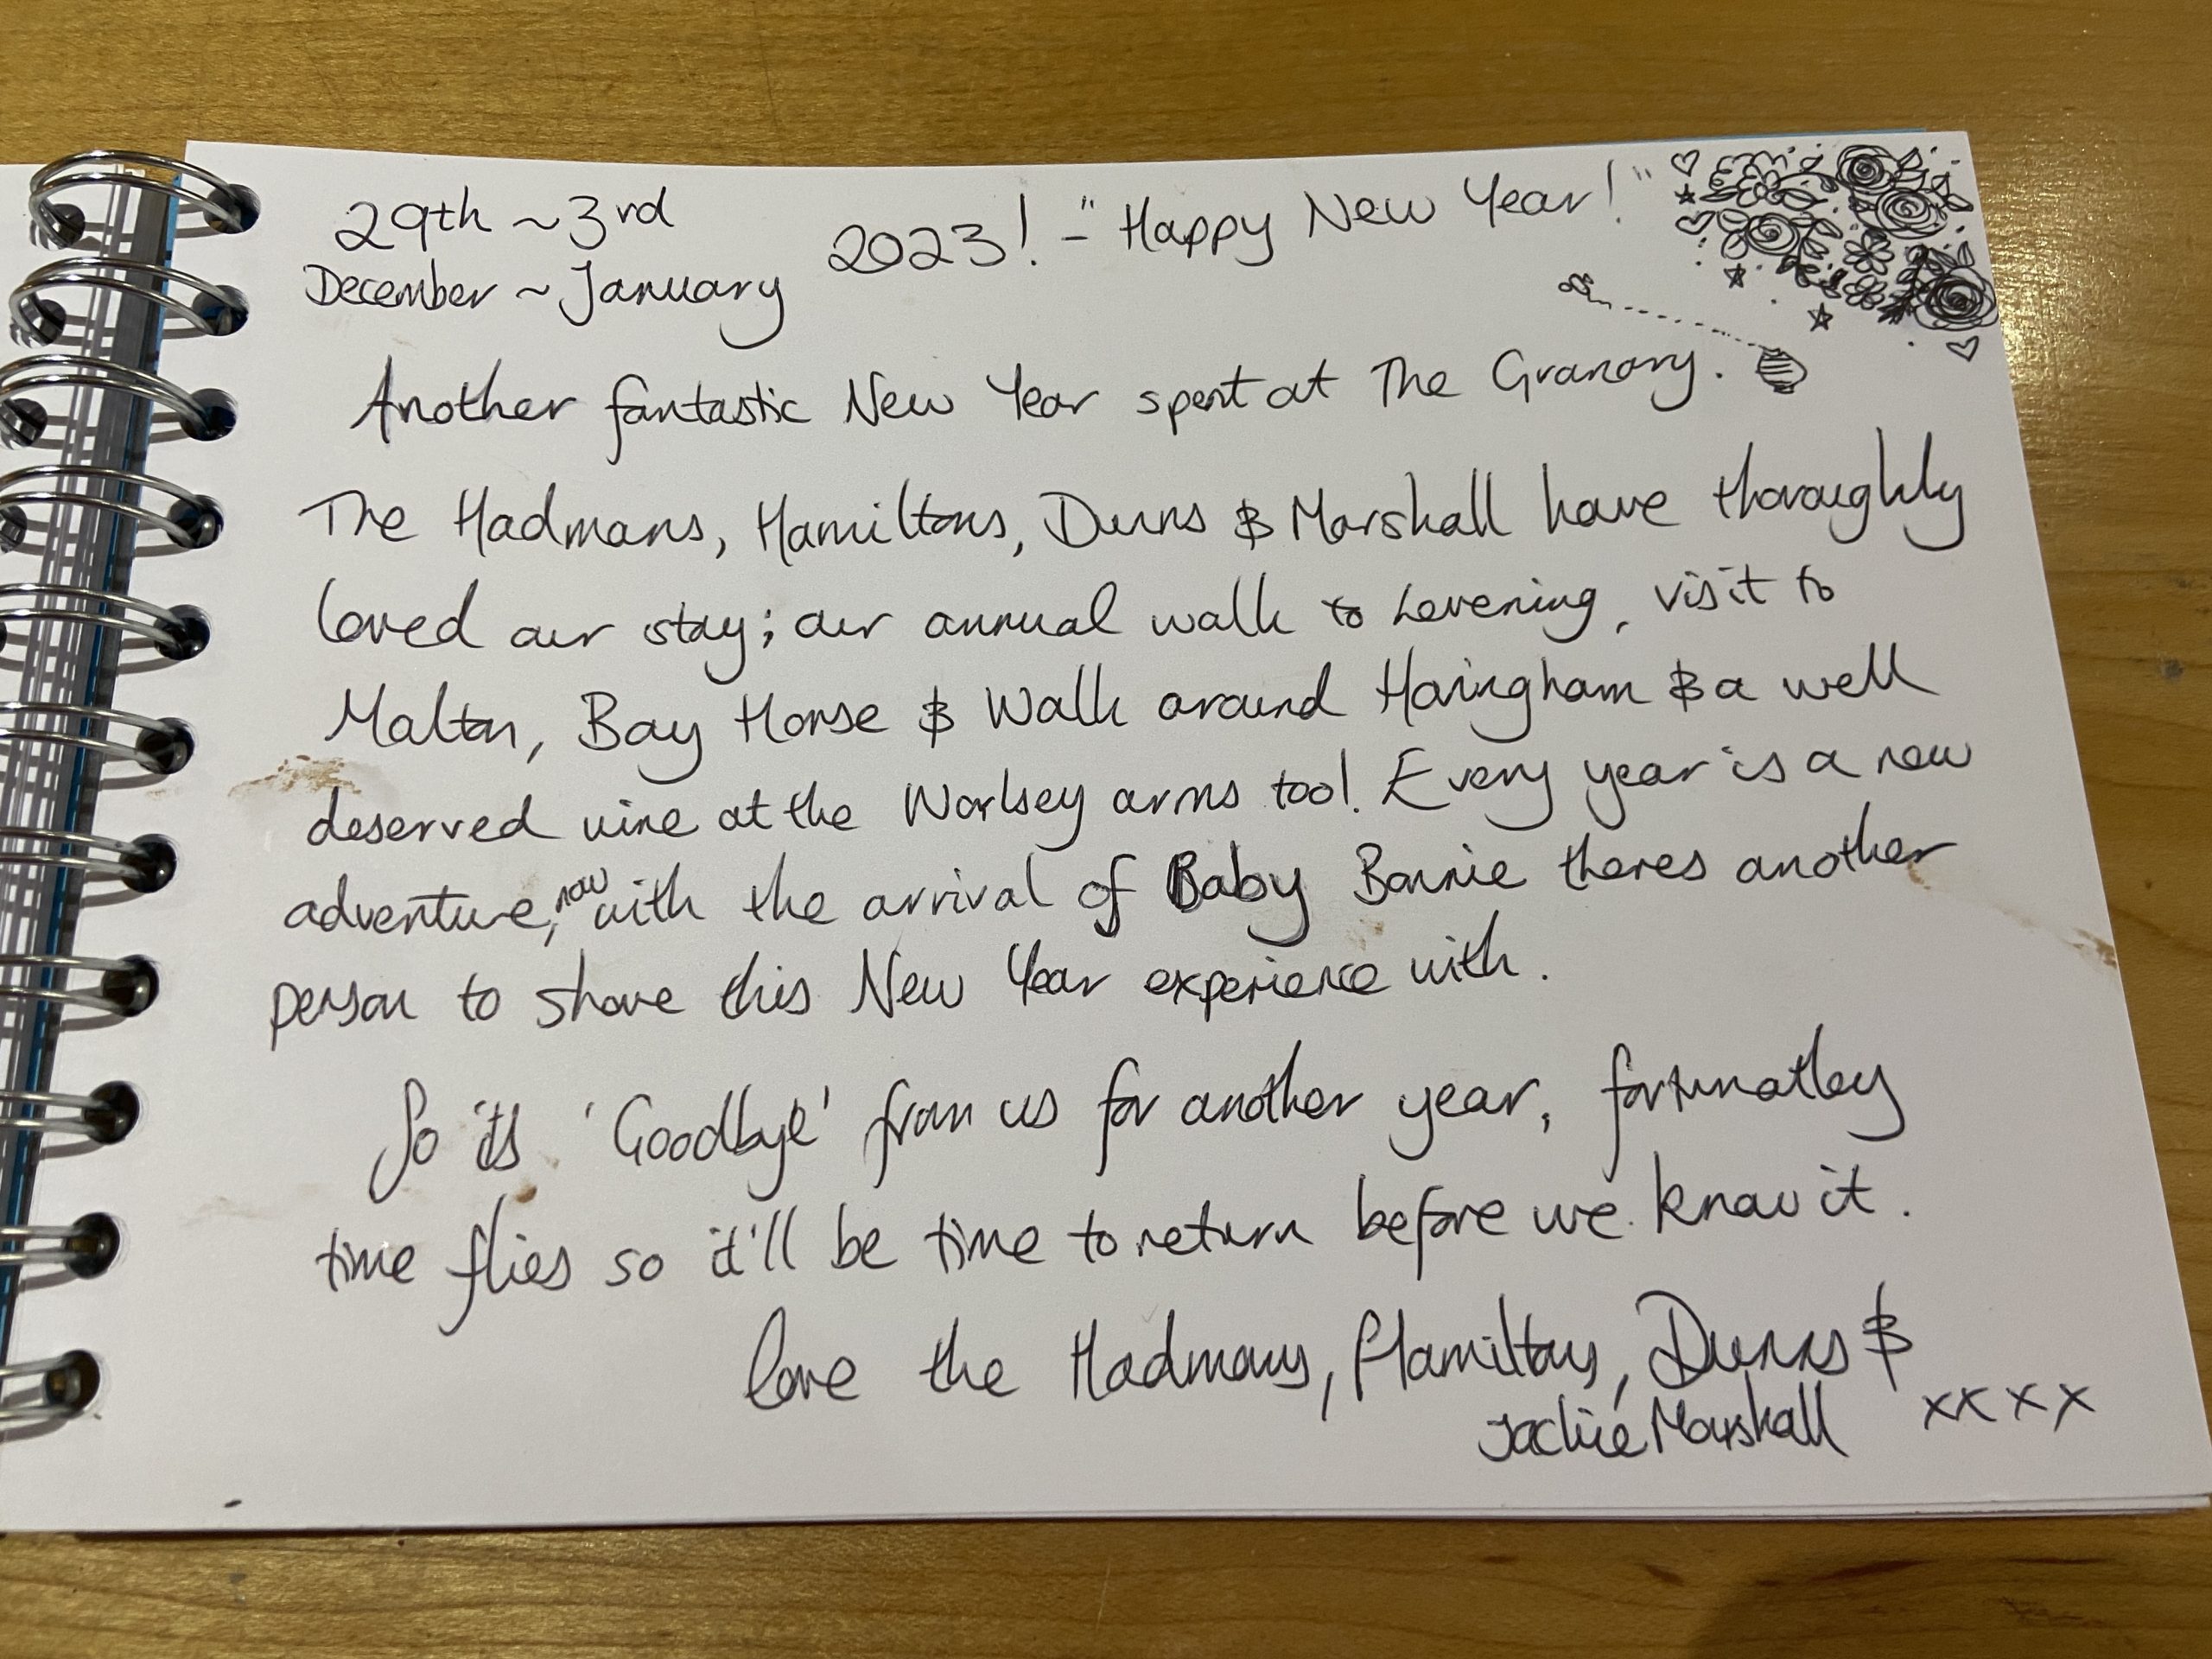 29th ~ 3rd
December ~ January 2023! - "Happy New Year!"
Another fantastic New Year spent at The Granary.
The Hadmans, Hamiltons, Dunns & Marshall have thoroughly
loved our stay; our annual walk to Levening, visit to
Malton, Bay Horse & Walk around Haringham & a well
deserved wine at the Worlsey arms too! Every year is a new
adventure, now with the arrival of Baby Bonnie theres another
person to share this New Year experience with.
So its 'Goodbye' from us for another year, fortunatley
time flies so it'll be time to return before we know it.
love the Hadmans, Hamiltons, Dunns &
Jackie Marshall xxxx